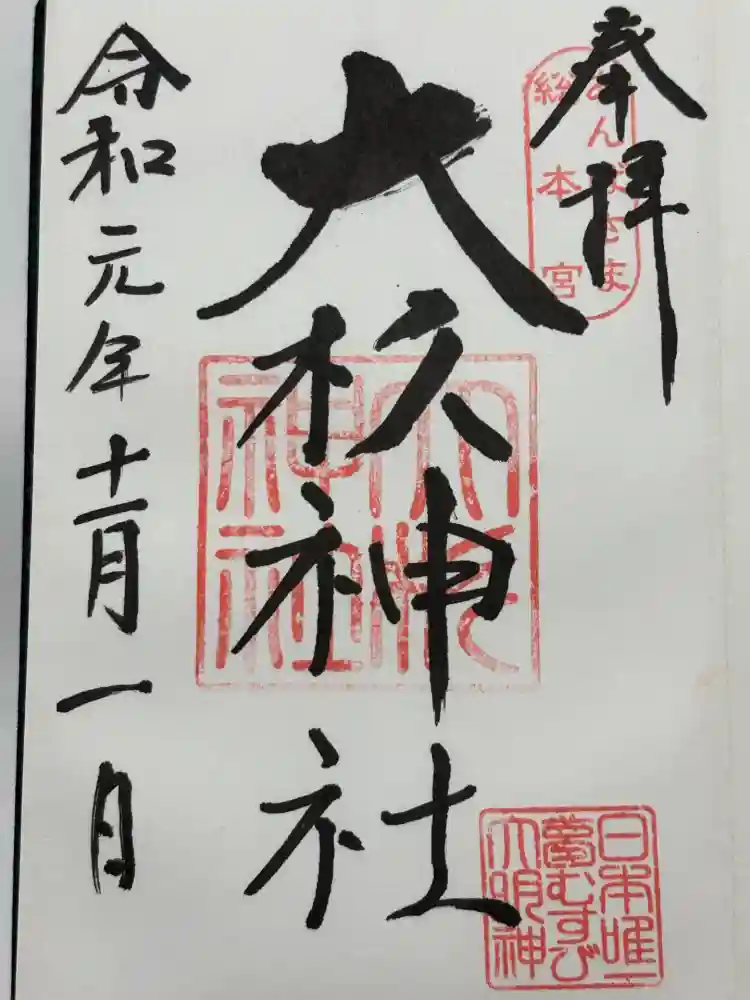 奉拝
あんばさま
総本宮
大杦神社
大杉
神社
日本唯一
夢むすび
大明神
令和元年十一月一日